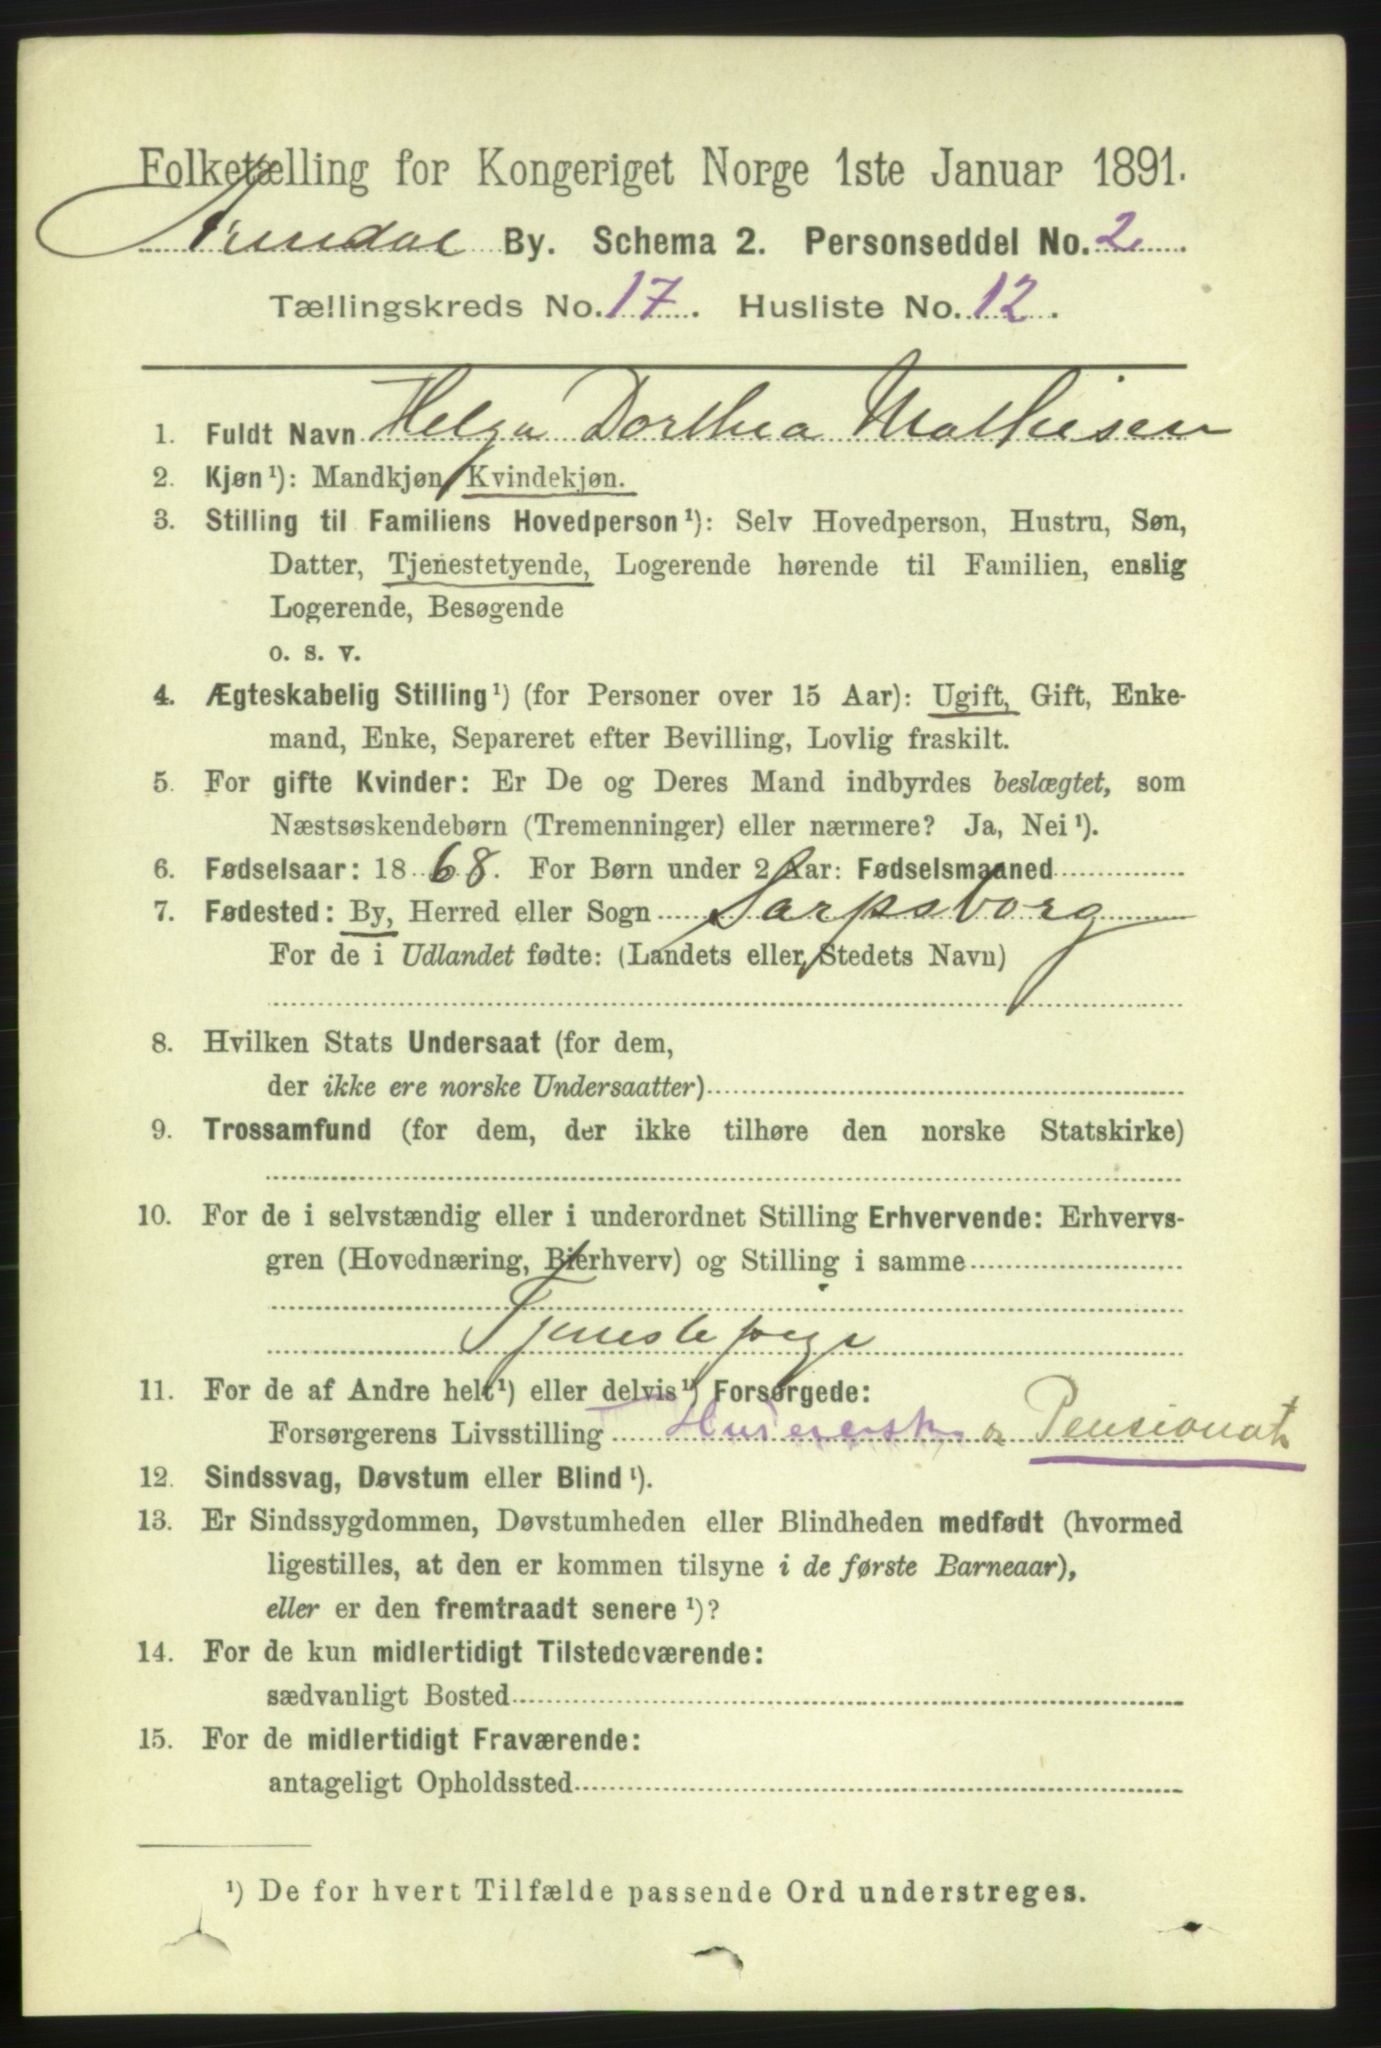 Folketælling for Kongeriget Norge 1ste Januar 1891.
Arendal By. Schema 2. Personseddel No. 2
Tællingskreds No. 17. Husliste No. 12.
1. Fuldt Navn Helga Dorthea Mathisen
2. Kjøn¹): Mandkjøn, Kvindekjøn.
3. Stilling til Familiens Hovedperson¹): Selv Hovedperson, Hustru, Søn,
Datter, Tjenestetyende, Logerende hørende til Familien, enslig
Logerende, Besøgende
o. s. v.
4. Ægteskabelig Stilling¹) (for Personer over 15 Aar): Ugift, Gift, Enke-
mand, Enke, Separeret efter Bevilling, Lovlig fraskilt.
5. For gifte Kvinder: Er De og Deres Mand indbyrdes beslægtet, som
Næstsøskendebørn (Tremenninger) eller nærmere? Ja, Nei¹).
6. Fødselsaar: 1868. For Børn under 2 Aar: Fødselsmaaned
7. Fødested: By, Herred eller Sogn Sarpsborg
For de i Udlandet fødte: (Landets eller Stedets Navn)
8. Hvilken Stats Undersaat (for dem,
der ikke ere norske Undersaatter)
9. Trossamfund (for dem, der ikke tilhøre den norske Statskirke)
10. For de i selvstændig eller i underordnet Stilling Erhvervende: Erhvervs-
gren (Hovednæring, Bierhverv) og Stilling i samme
Tjenestepige
11. For de af Andre helt¹) eller delvis¹) Forsørgede:
Forsørgerens Livsstilling Pensionat
12. Sindssvag, Døvstum eller Blind¹).
13. Er Sindssygdommen, Døvstumheden eller Blindheden medfødt (hvormed
ligestilles, at den er kommen tilsyne i de første Barneaar),
eller er den fremtraadt senere¹)?
14. For de kun midlertidigt Tilstedeværende:
sædvanligt Bosted
15. For de midlertidigt Fraværende:
antageligt Opholdssted
¹) De for hvert Tilfælde passende Ord understreges.